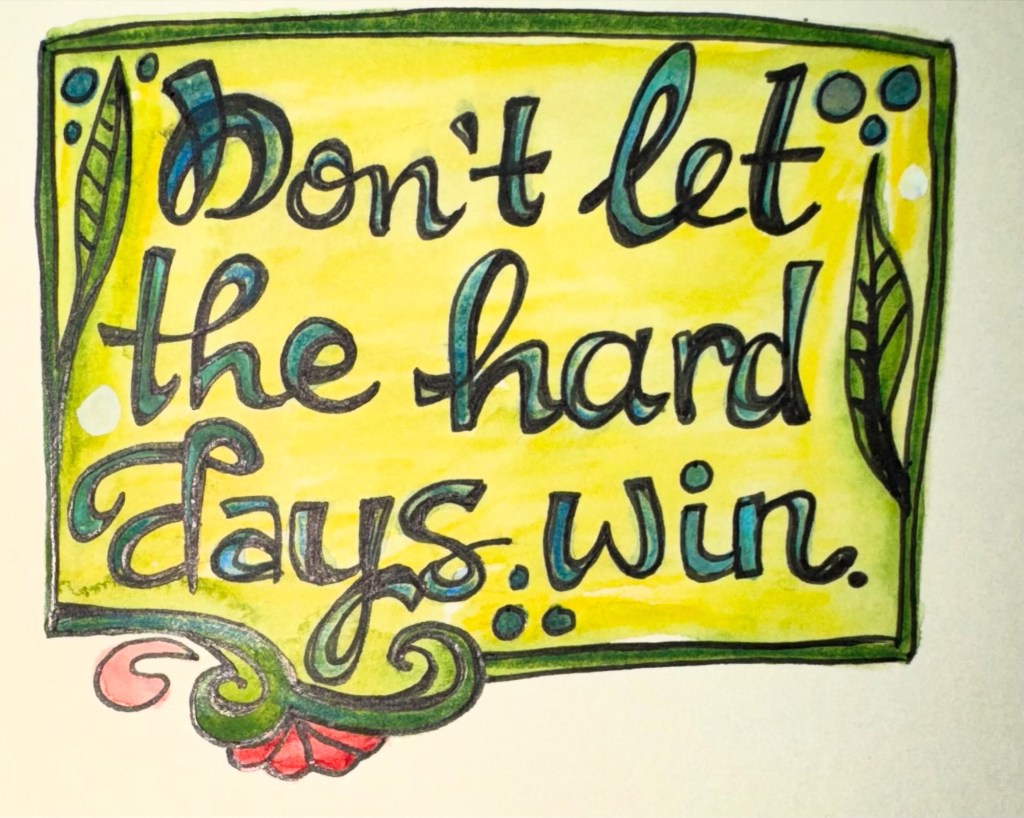 Don't let
the hard
days win.